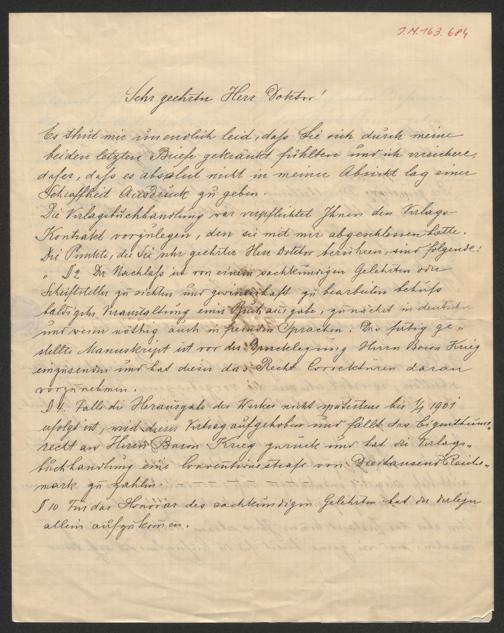 J.N. 163.684
Sehr geehrter Herr Doktor!
Es thut mir unendlich leid, daß Sie sich durch meine
beiden letzten Briefe gekränkt fühlten und ich versichere,
daß es absolut nicht in meiner Absicht lag einer
Schroffheit Ausdruck zu geben.
Die Verlagsbuchhandlung war verpflichtet Ihnen den Verlags-
Kontrakt vorzulegen, den sie mit mir abgeschlossen hatte.
Die Punkte, die Sie sehr geehrter Herr Doktor berühren, sind folgende:
" § 2 Der Nachlaß ist von einem sachkundigen Gelehrten oder
Schriftsteller zu sichten und zu bearbeiten behufs
baldigster Veranstaltung einer Buchausgabe, zunächst in deutscher
und wenn nöthig auch in fremden Sprachen. Die fertig ge-
stellte Manuskript ist vor der Drucklegung Herrn Baron Krieg
einzusenden und hat dieser das Recht Correkturen daran
vorzunehmen.
§ 4. Falls die Herausgabe des Werkes nicht spätestens bis 1/4 1901
erfolgt ist, wird dieser Vertrag aufgehoben und fällt das Eigenthums-
recht an Herrn Baron Krieg zurück und hat die Verlags-
buchhandlung eine Conventionalstrafe von Dreitausend Reichs-
mark zu zahlen.
§ 10 Für das Honorar des sachkundigen Gelehrten hat der Verleger
allein aufzukommen.